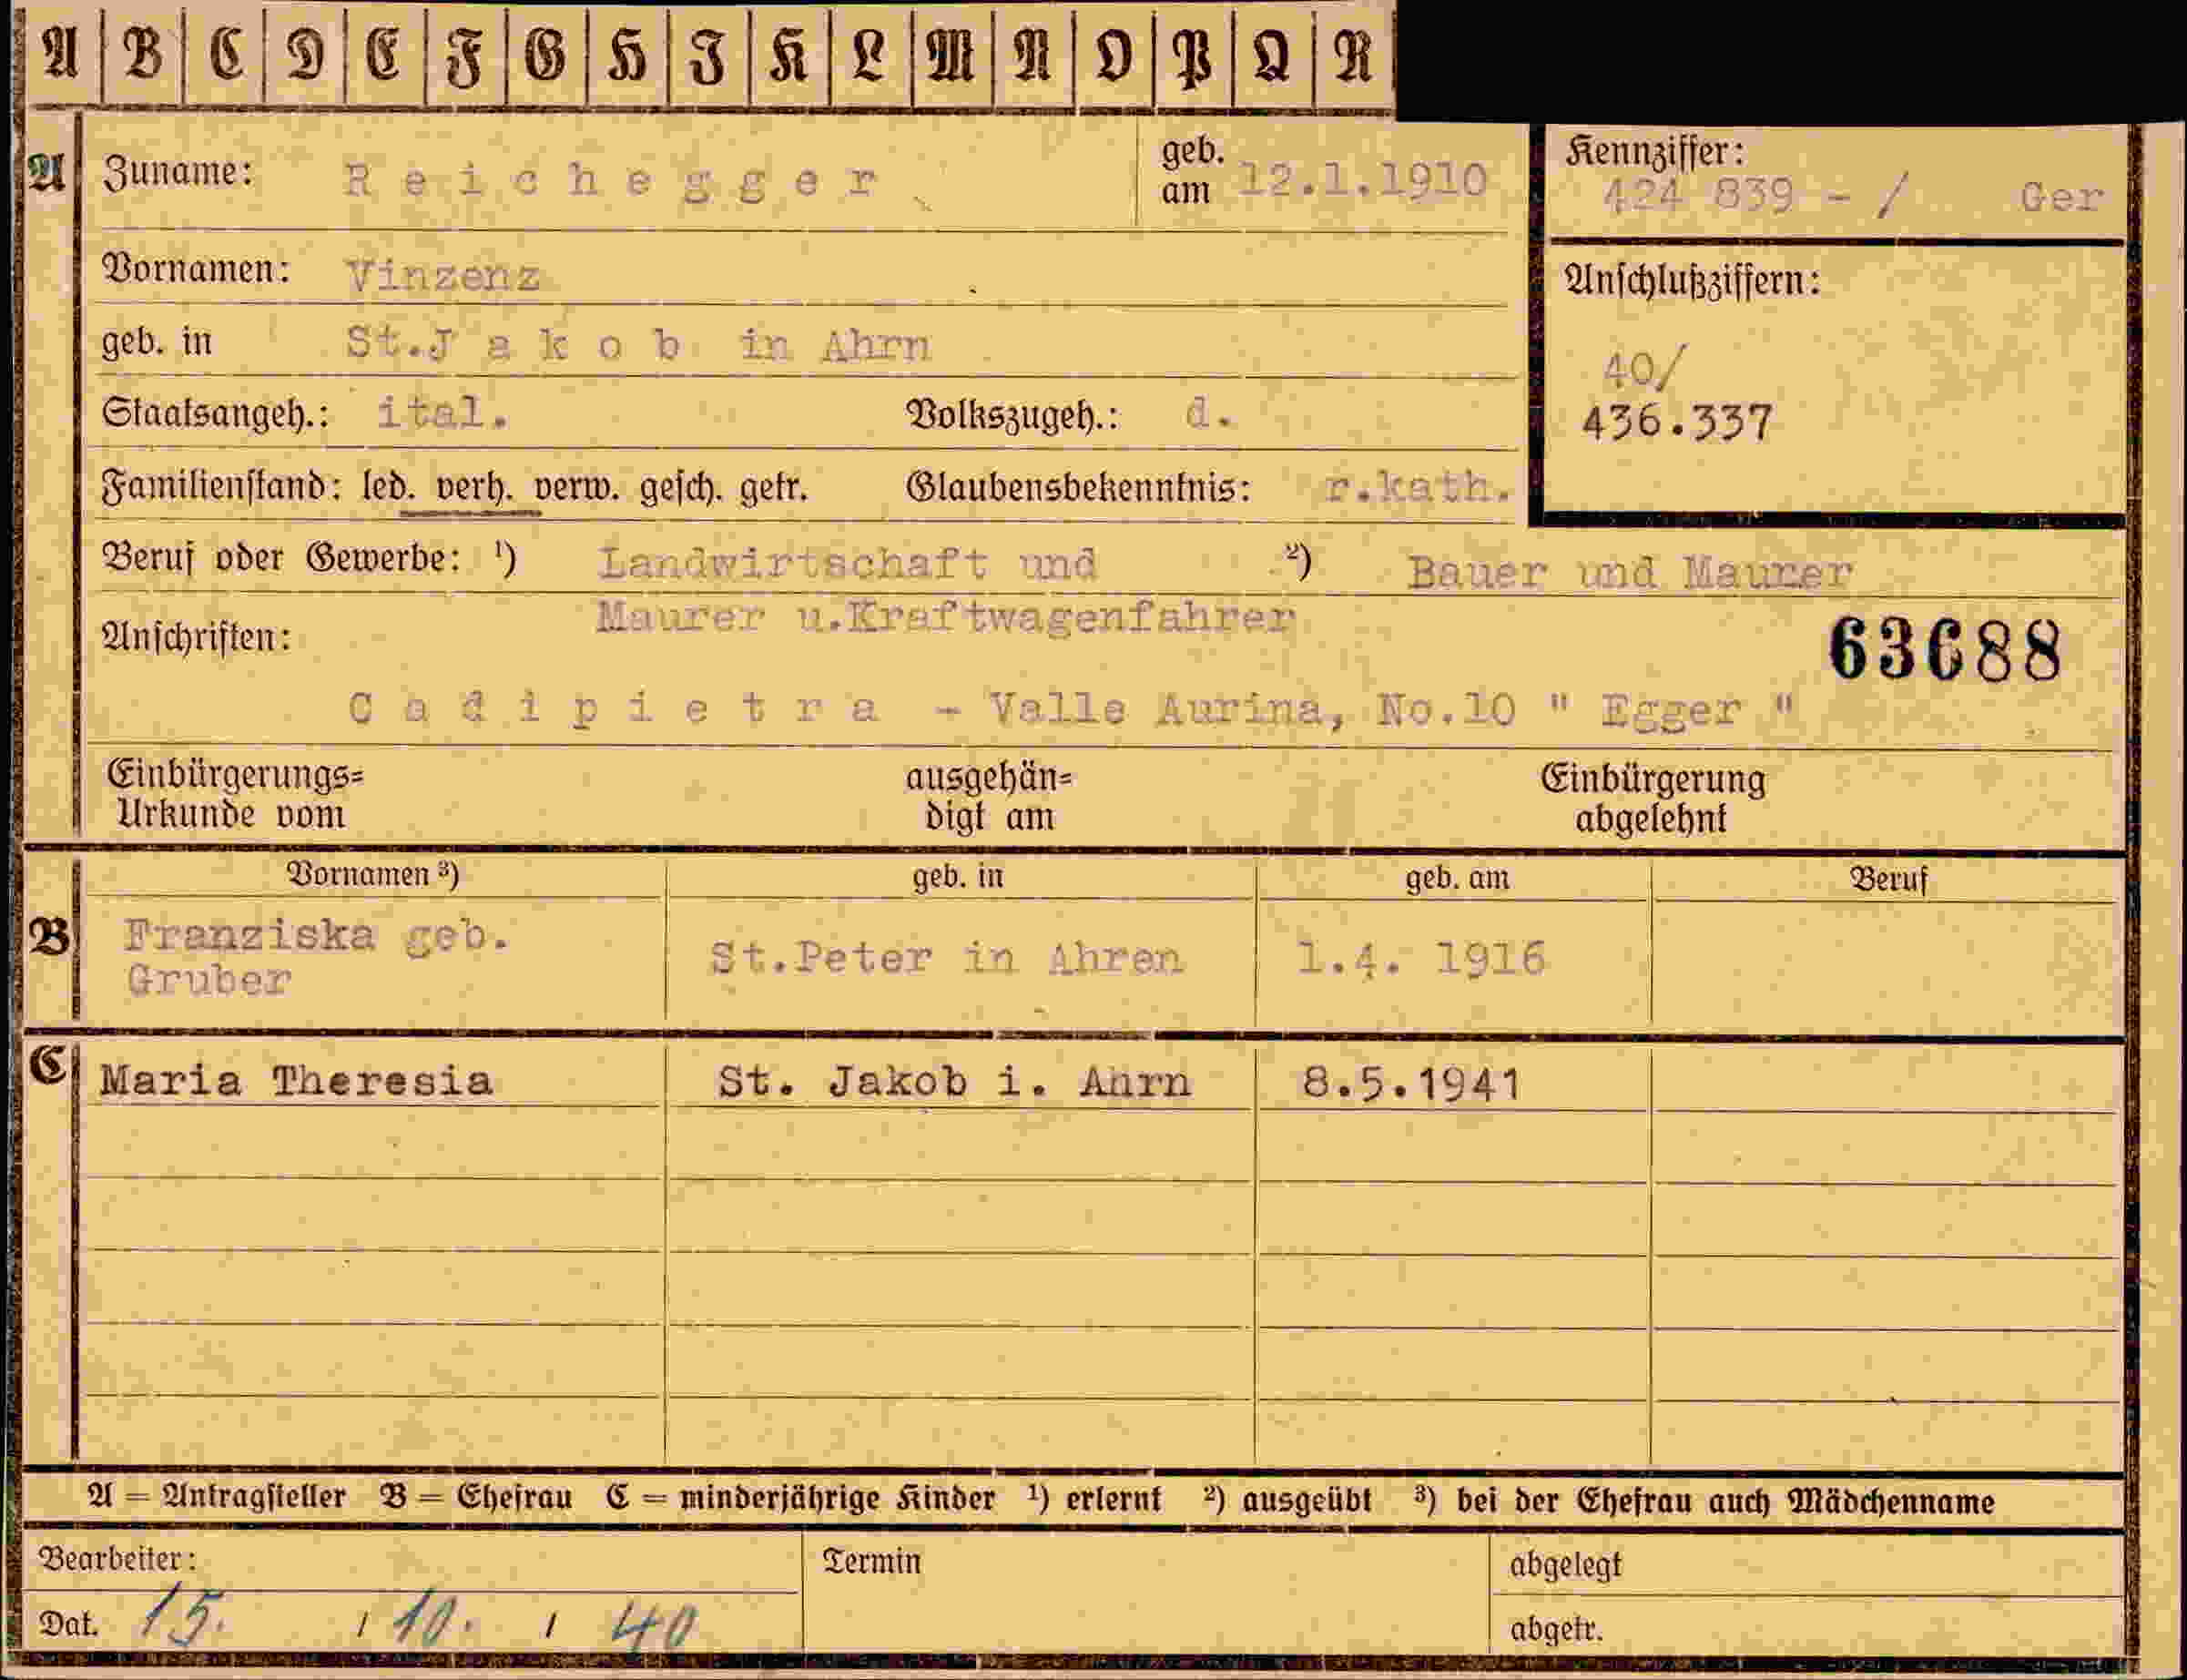 A B C D E F G H I K L M N O P Q R
A Zuname: Reichegger geb. am 12.1.1910
Kennziffer:
424 839 - / Ger
Vornamen: Vinzenz
Anschlußziffern:
geb. in St.Jakob in Ahrn
40/
Staatsangeh.: ital. Volkszugeh.: d.
436.337
Familienstand: led. verh. verw. gesch. getr. Glaubensbekenntnis: r.kath.
Beruf oder Gewerbe: ¹) Landwirtschaft und ²) Bauer und Maurer
Maurer u.Kraftwagenfahrer
Anschriften: 63688
Cadipietra - Valle Aurina, No.10 " Egger "
Einbürgerungs= ausgehän= Einbürgerung
Urkunde vom digt am abgelehnt
Vornamen ³) geb. in geb. am Beruf
B Franziska geb.
Gruber St.Peter in Ahren 1.4. 1916
C Maria Theresia St. Jakob i. Anrn 8.5.1941
A = Antragsteller B = Ehefrau C = minderjährige Kinder ¹) erlernt ²) ausgeübt ³) bei der Ehefrau auch Mädchenname
Bearbeiter: Termin abgelegt
Dat. 15. / 10. / 40 abgetr.